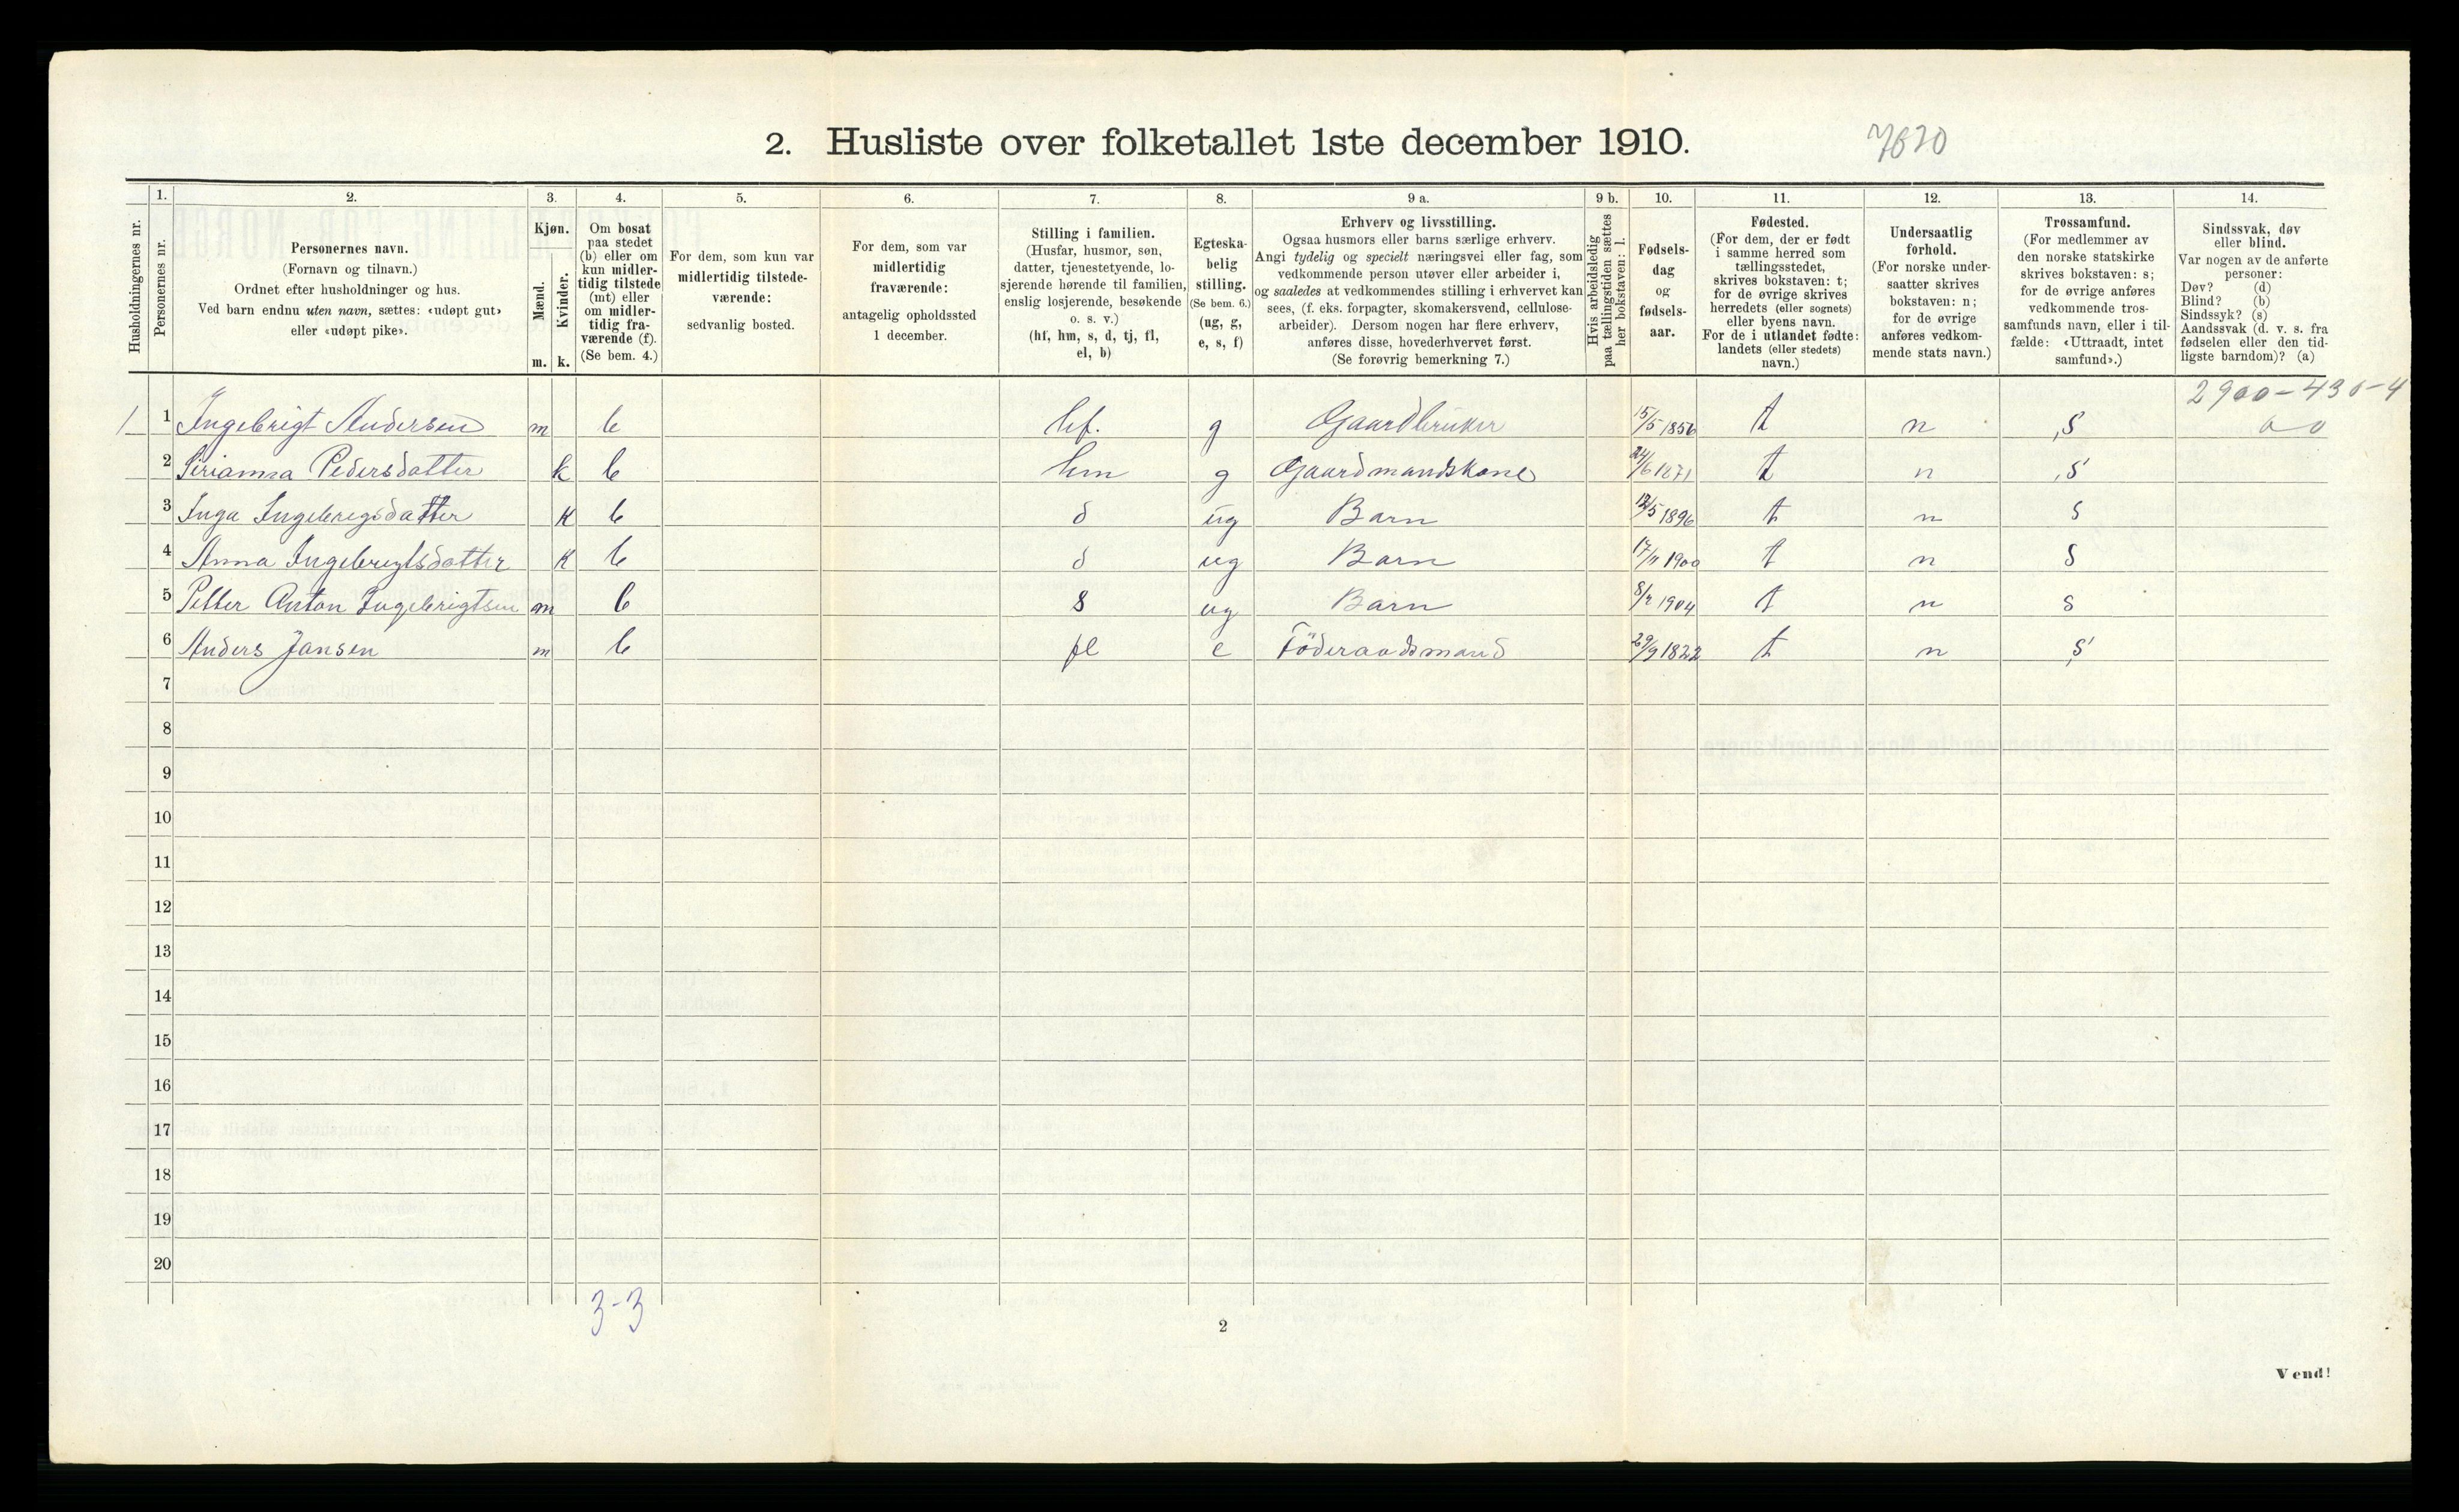 2. Husliste over folketallet 1ste december 1910.
7620
1. 2. 3. 4. 5. 6. 7. 8. 9 a. 9 b. 10. 11. 12. 13. 14.
Husholdningernes nr.
Personernes nr.
Personernes navn.
(Fornavn og tilnavn.)
Ordnet efter husholdninger og hus.
Ved barn endnu uten navn, sættes: «udøpt gut»
eller «udøpt pike».
Kjøn.
Mænd.
Kvinder.
m. k.
Om bosat
paa stedet
(b) eller om
kun midler-
tidig tilstede
(mt) eller
om midler-
tidig fra-
værende (f).
(Se bem. 4.)
For dem, som kun var
midlertidig tilstede-
værende:
sedvanlig bosted.
For dem, som var
midlertidig
fraværende:
antagelig opholdssted
1 december.
Stilling i familien.
(Husfar, husmor, søn,
datter, tjenestetyende, lo-
sjerende hørende til familien,
enslig losjerende, besøkende
o. s. v.)
(hf, hm, s, d, tj, fl,
el, b)
Egteska-
belig
stilling.
(Se bem. 6.)
(ug, g,
e, s, f)
Erhverv og livsstilling.
Ogsaa husmors eller barns særlige erhverv.
Angi tydelig og specielt næringsvei eller fag, som
vedkommende person utøver eller arbeider i,
og saaledes at vedkommendes stilling i erhvervet kan
sees, (f. eks. forpagter, skomakersvend, cellulose-
arbeider). Dersom nogen har flere erhverv,
anføres disse, hovederhvervet først.
(Se forøvrig bemerkning 7.)
Hvis arbeidsledig
paa tællingstiden sættes
her bokstaven: l.
Fødsels-
dag
og
fødsels-
aar.
Fødested.
(For dem, der er født
i samme herred som
tællingsstedet,
skrives bokstaven: t;
for de øvrige skrives
herredets (eller sognets)
eller byens navn.
For de i utlandet fødte:
landets (eller stedets)
navn.)
Undersaatlig
forhold.
(For norske under-
saatter skrives
bokstaven: n;
for de øvrige
anføres vedkom-
mende stats navn.)
Trossamfund.
(For medlemmer av
den norske statskirke
skrives bokstaven: s;
for de øvrige anføres
vedkommende tros-
samfunds navn, eller i til-
fælde: «Uttraadt, intet
samfund».)
Sindssvak, døv
eller blind.
Var nogen av de anførte
personer:
Døv? (d)
Blind? (b)
Sindssyk? (s)
Aandssvak (d. v. s. fra
fødselen eller den tid-
ligste barndom)? (a)
1 1 Ingebrigt Andersen m b hf. g Gaardbruker 15/5 1856 t n s
2 Pedersdatter k b hm g Gaardmandskone 24/6 1871 t n s
3 Inga Ingebrigsdatter k b d ug Barn 12/5 1896 t n s
4 Anna Ingebrigtsdatter k b d ug Barn 17/11 1900 t n s
5 Petter Anton Ingebrigtsen m b s ug Barn 8/2 1904 t n s
6 Anders Jansen m b fl e Föderaadsmand 29/9 1822 t n s
7
8
9
10
11
12
13
14
15
16
17
18
19
20
3-3
2
Vend!